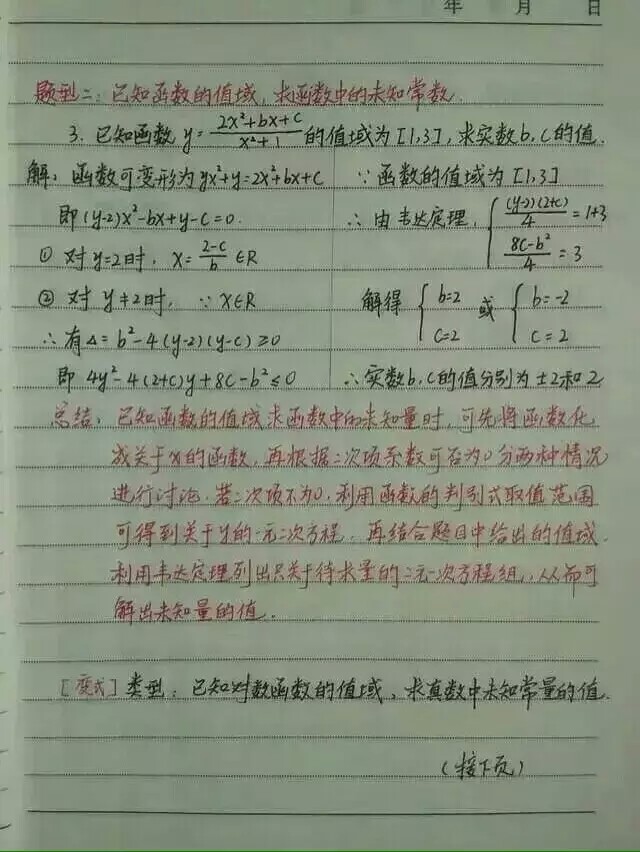 年 月 日
题型二：已知函数的值域，求函数中的未知常数.
3. 已知函数 y=\frac{2x²+bx+c}{x²+1} 的值域为[1,3]，求实数b,c的值.
解：函数可变形为yx²+y=2x²+bx+c
即(y-2)x²-bx+y-c=0.
① 对y=2时，x=\frac{2-c}{b}∈R
② 对y≠2时，∵x∈R
∴有Δ=b²-4(y-2)(y-c)≥0
即 4y²-4(2+c)y+8c-b²≤0
∵函数的值域为[1,3]
∴由韦达定理，{\frac{(y-2)(2+c)}{4}=1+3
\frac{8c-b²}{4}=3
解得 {b=2 c=2 或 {b=-2 c=2
∴实数b,c的值分别为±2和2
总结：已知函数的值域求函数中的未知量时，可先将函数化
成关于x的函数，再根据二次项系数可否为0分两种情况
进行讨论.若二次项不为0，利用函数的判别式取值范围
可得到关于y的一元二次方程，再结合题目中给出的值域，
利用韦达定理列出只关于待求量的二元一次方程组，从而可
解出未知量的值.
[变式]类型：已知对数函数的值域，求真数中未知常量的值.
(接下页)